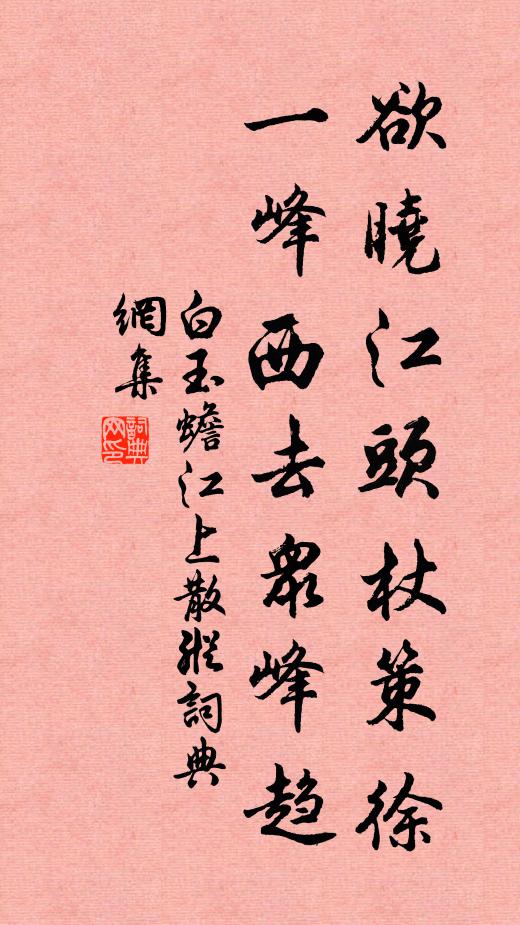 欲曉江頭杖策徐
一峰西去衆峰趋
白玉蟾江上散行詞典
網集
詞典
网印